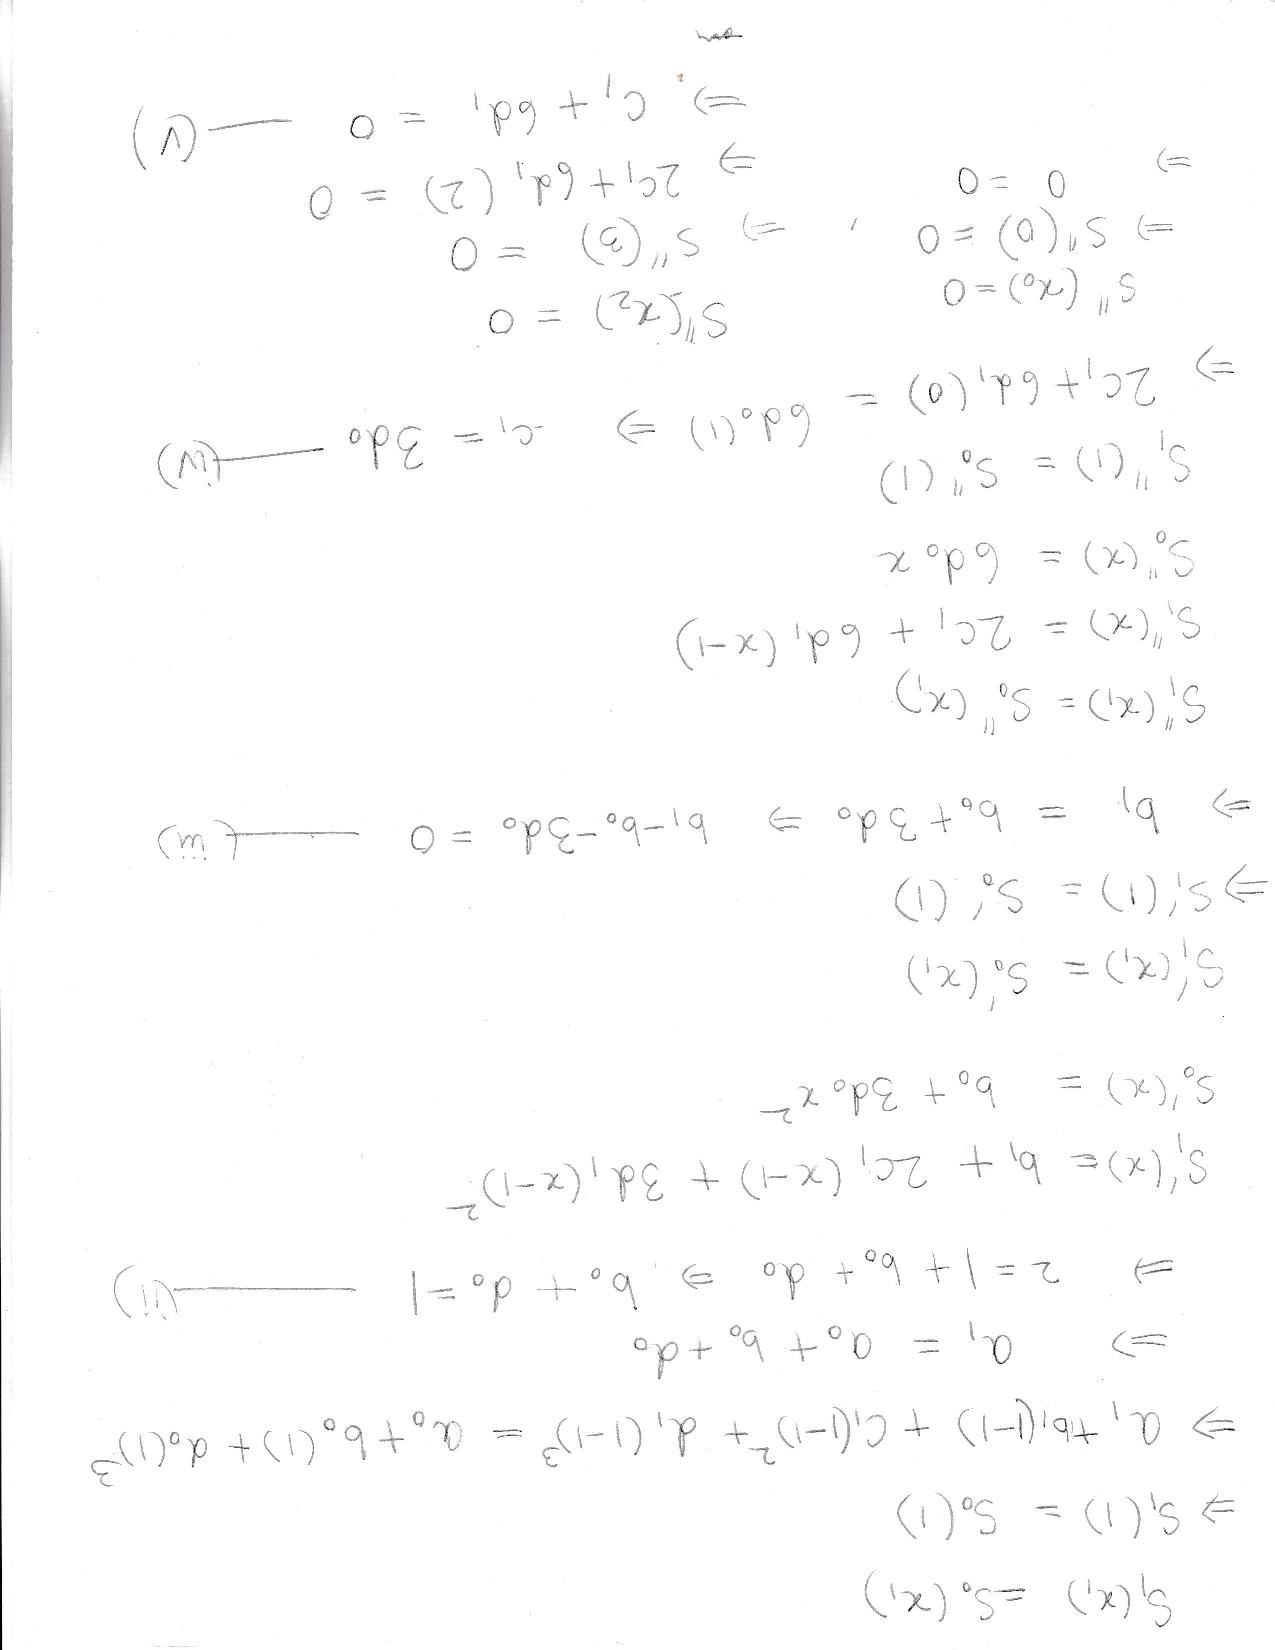 S₁(x₁) = S₀(x₁)
⇒ S₁(1) = S₀(1)
⇒ a₁ + b₁(1-1) + C₁(1-1)² + d₁(1-1)³ = a₀ + b₀(1) + d₀(1)³
⇒ a₁ = a₀ + b₀ + d₀
⇒ 2 = 1 + b₀ + d₀ ⇒ b₀ + d₀ = 1 —(ii)
S₁'(x) = b₁ + 2C₁(x-1) + 3d₁(x-1)²
S₀'(x) = b₀ + 3d₀x²
S₁'(x₁) = S₀'(x₁)
⇒ S₁'(1) = S₀'(1)
⇒ b₁ = b₀ + 3d₀ ⇒ b₁ - b₀ - 3d₀ = 0 —(iii)
S₁''(x₁) = S₀''(x₁)
S₁''(x) = 2C₁ + 6d₁(x-1)
S₀''(x) = 6d₀x
S₁''(1) = S₀''(1)
⇒ 2C₁ + 6d₁(0) = 6d₀(1) ⇒ C₁ = 3d₀ —(iv)
S''(x₀) = 0 S''(x₂) = 0
⇒ S''(0) = 0 , ⇒ S''(3) = 0
⇒ 0 = 0 ⇒ 2C₁ + 6d₁(2) = 0
⇒ C₁ + 6d₁ = 0 —(v)